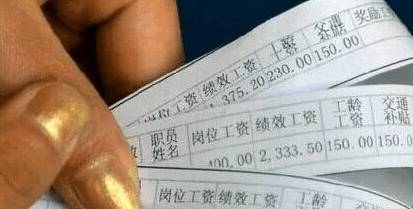 岗位工资 绩效工资 工龄 交通 补贴 奖励工
,375.20 230.00 150.00
职员 姓名 岗位工资 绩效工资 工龄 工资 交通 补贴
400.00 2,333.50 150.00 150.0
岗位工资 绩效工资 工龄